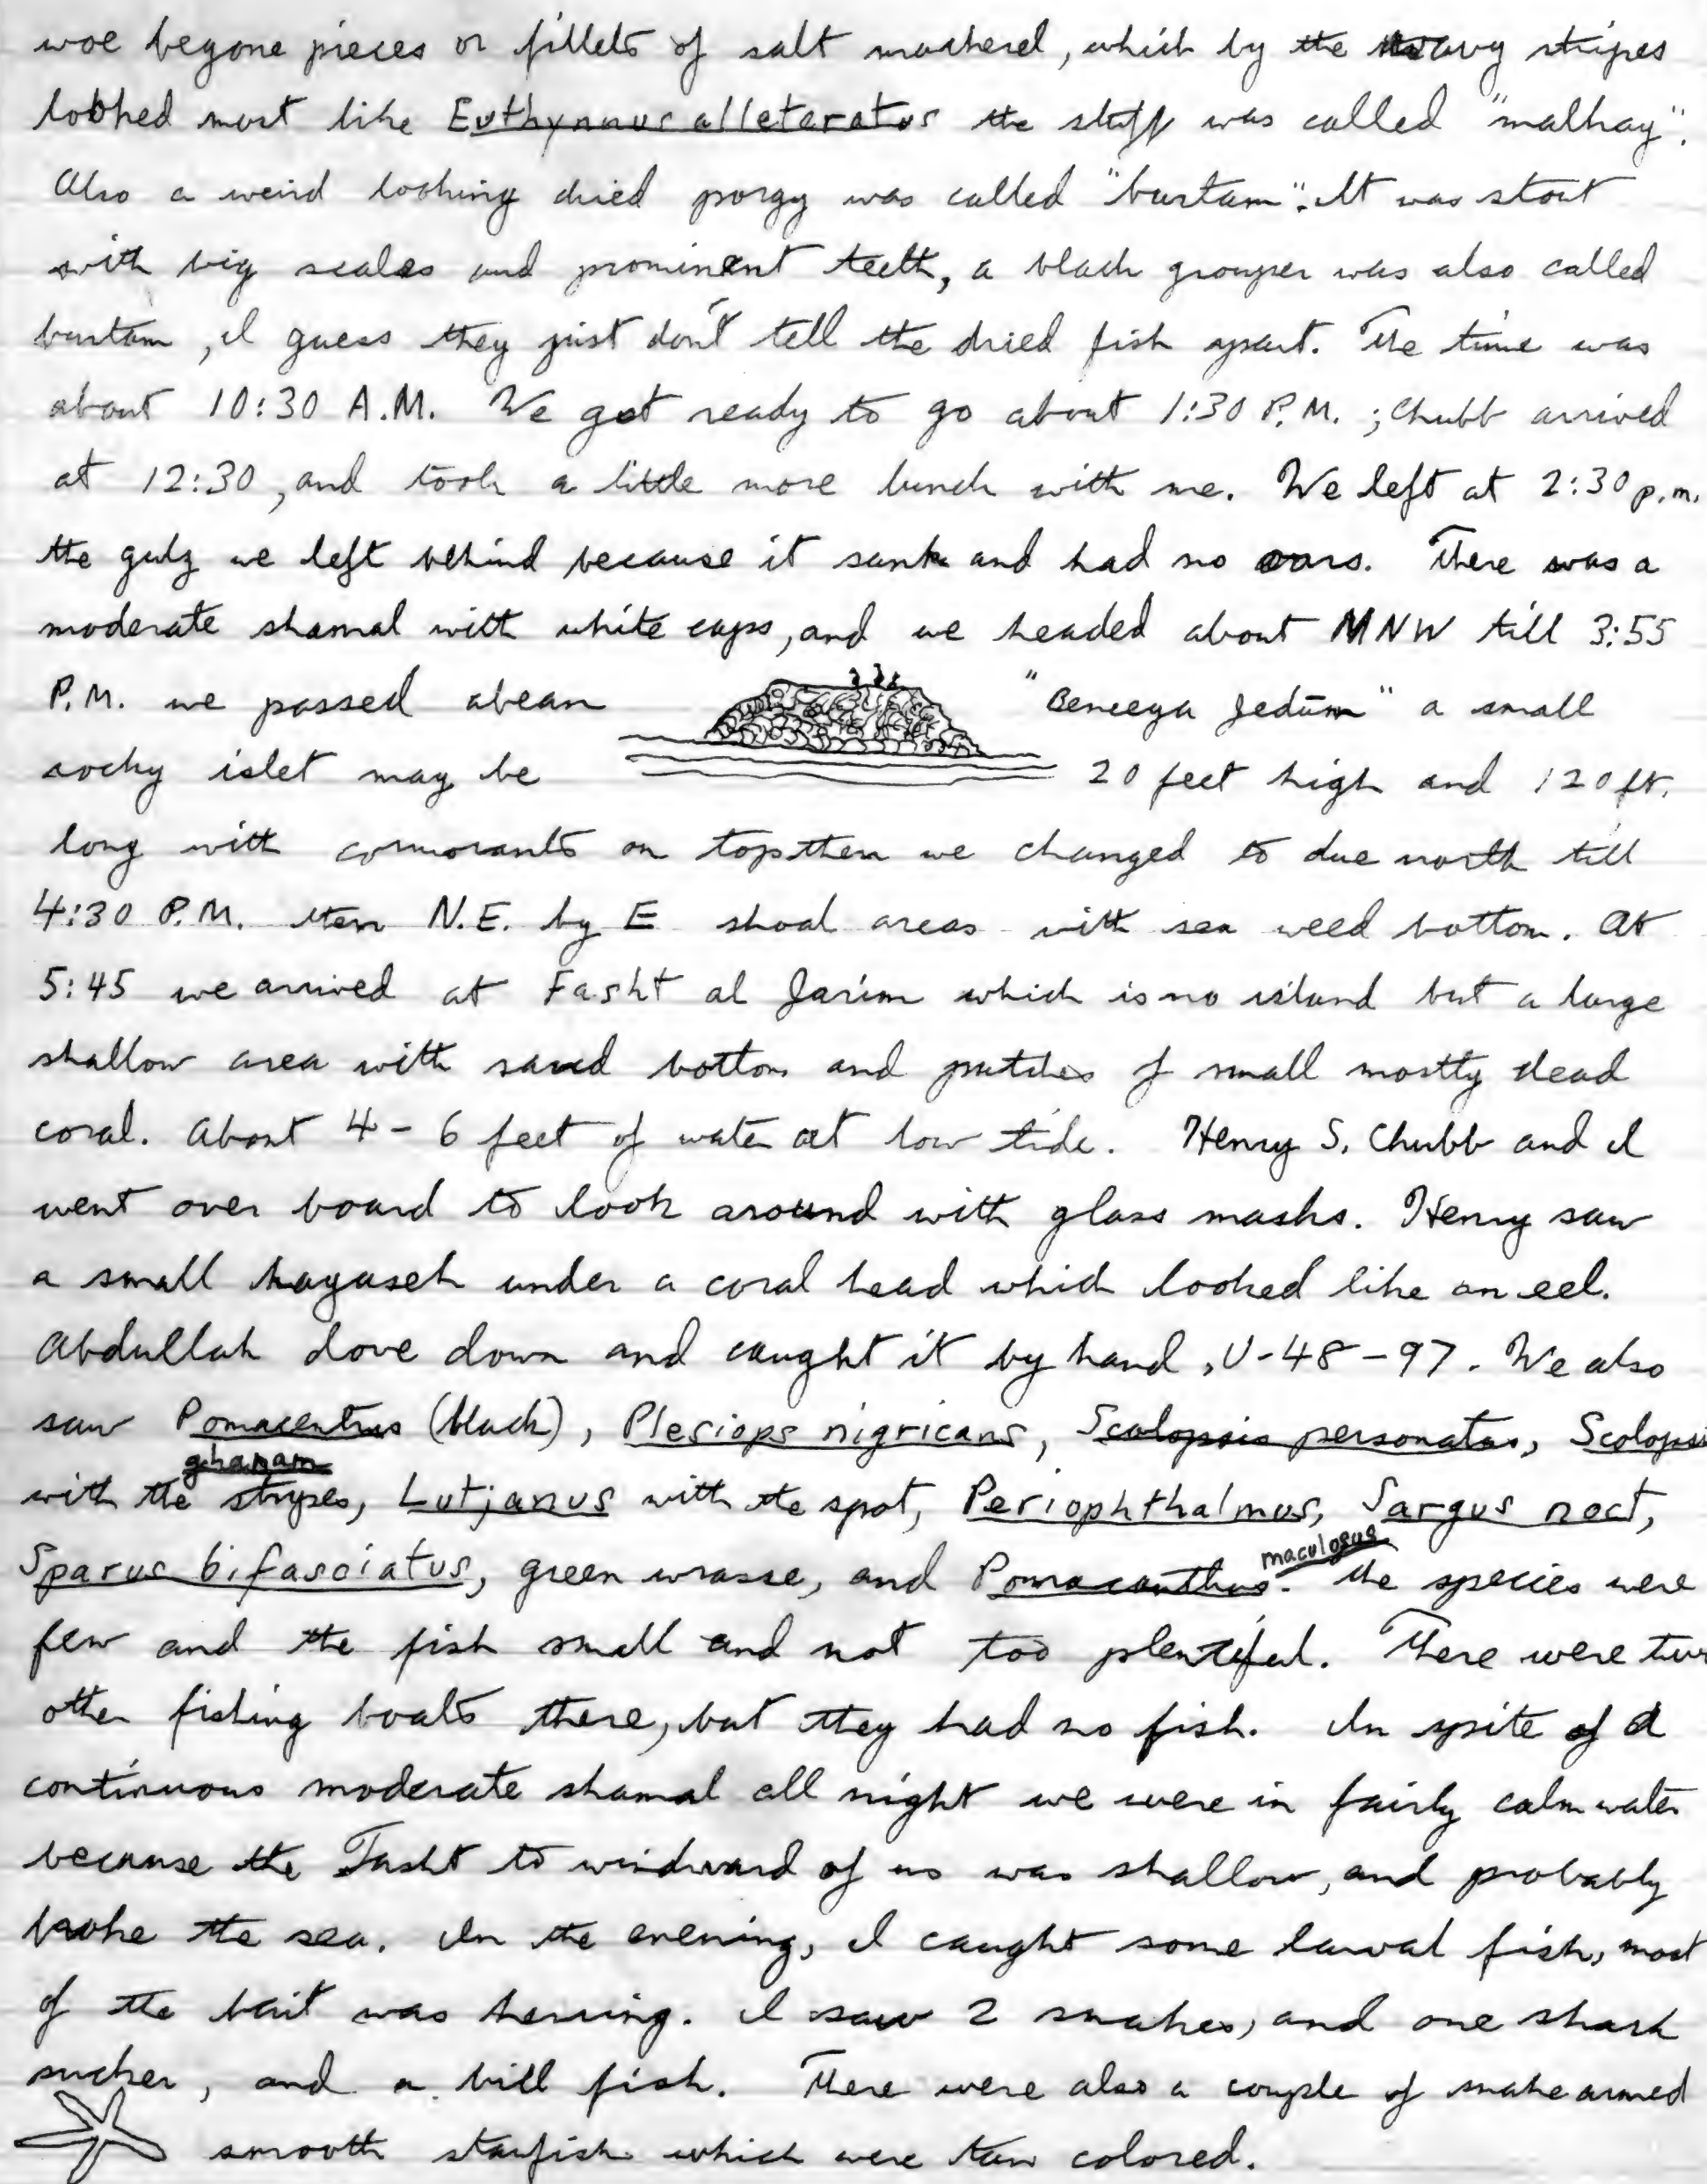 woe begone pieces or fillets of salt mackerel, which by the wavy stripes
looked most like Euthynnus alleteratus the stuff was called "malhay".
Also a weird looking dried porgy was called "bartam". It was stout
with big scales and prominent teeth, a black grouper was also called
bartam, I guess they just don't tell the dried fish apart. The time was
about 10:30 A.M. We got ready to go about 1:30 P.M. ; Chubb arrived
at 12:30, and took a little more lunch with me. We left at 2:30 p.m.
the gulz we left behind because it sank and had no oars. There was a
moderate shamal with white caps, and we headed about MNW till 3:55
P.M. we passed abean "Beneeya Jedūm" a small
rocky islet may be 20 feet high and 120 ft.
long with cormorants on top then we changed to due north till
4:30 P.M. then N.E. by E shoal areas with sea weed bottom. At
5:45 we arrived at Fasht al Jarim which is no island but a large
shallow area with sand bottom and patches of small mostly dead
coral. About 4 - 6 feet of water at low tide. Henry S. Chubb and I
went over board to look around with glass masks. Henry saw
a small hayaseh under a coral head which looked like an eel.
Abdullah dove down and caught it by hand, U-48-97. We also
saw Pomacentrus (black), Plesiops nigricans, Scolopsis personatas, Scolopsi
ghanam
with the stripes, Lutjanus with the spot, Periophthalmus, Sargus noct,
maculosus
Sparus bifasciatus, green wrasse, and Pomacanthus. The species were
few and the fish small and not too plentiful. There were two
other fishing boats there, but they had no fish. In spite of a
continuous moderate shamal all night we were in fairly calm water
because the Fasht to windward of us was shallow, and probably
broke the sea. In the evening, I caught some larval fish, most
of the bait was herring. I saw 2 snakes, and one shark
sucker, and a bill fish. There were also a couple of snake armed
smooth starfish which were tan colored.